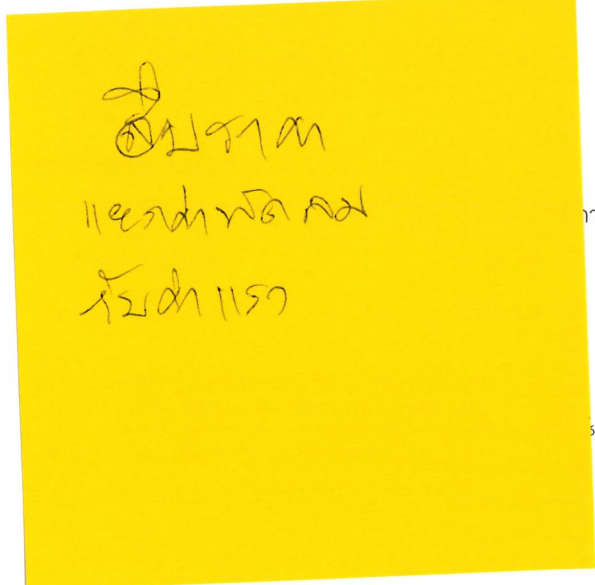 สืบราคา
แยกค่าพัดลม
กับค่าแรง